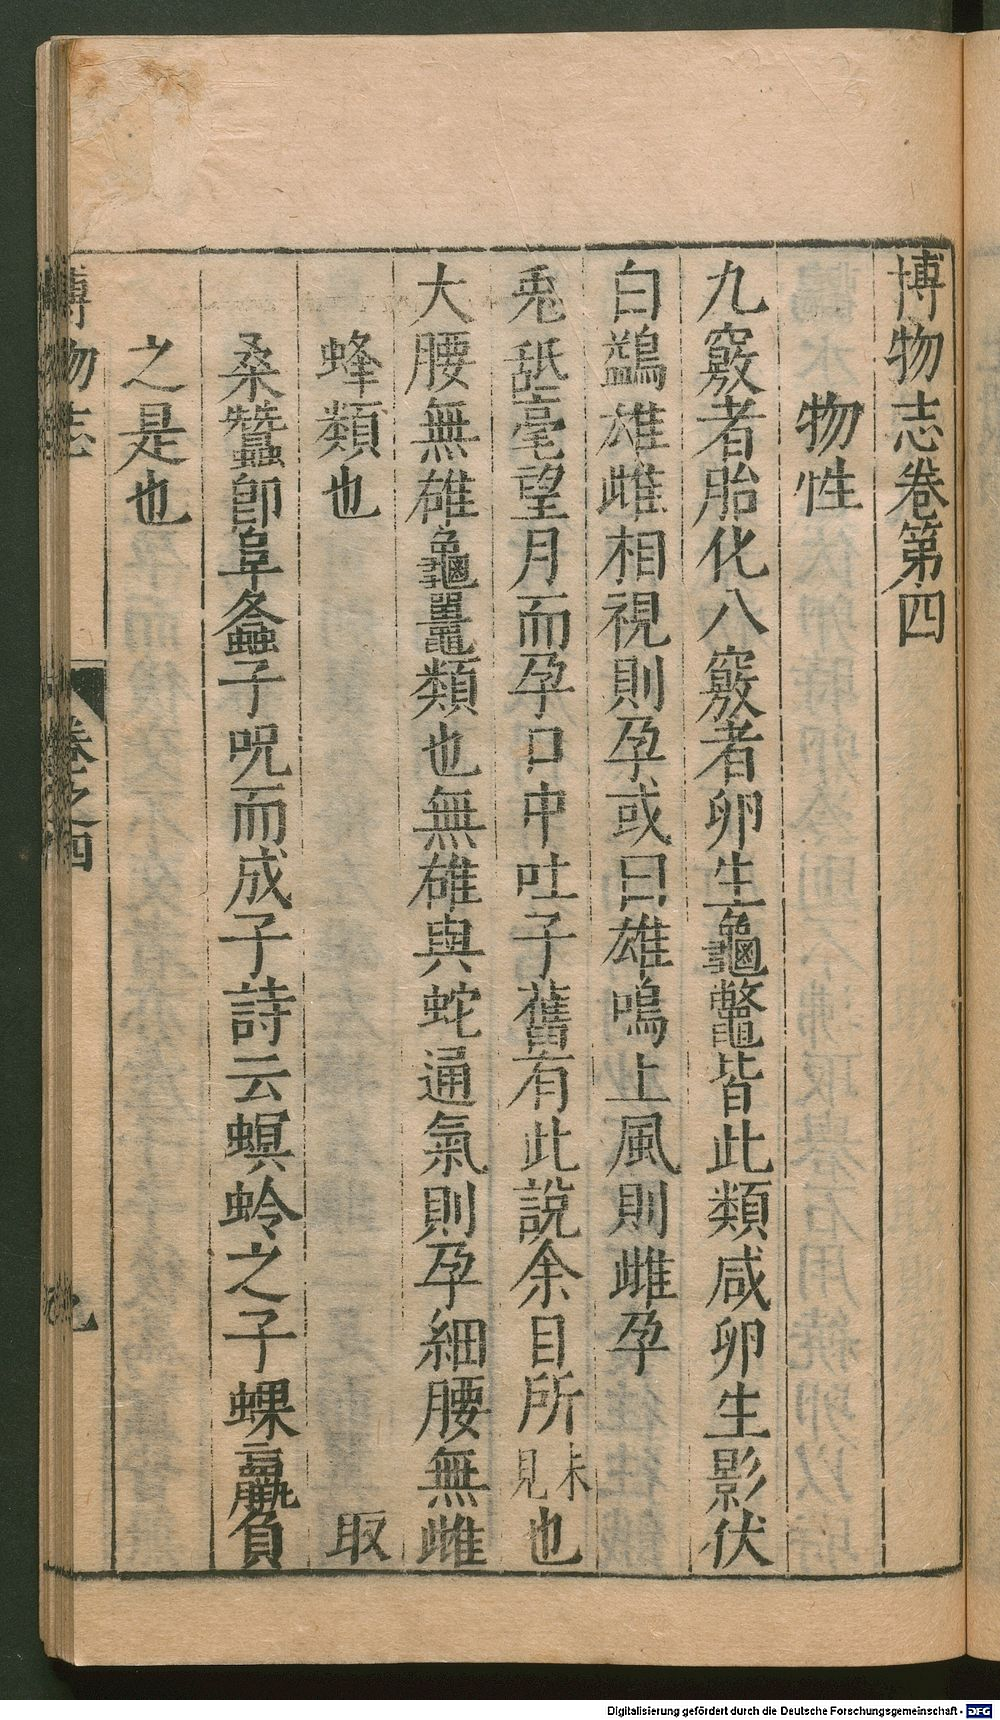 博物志卷第四
物性
九竅者胎化八竅者卵生龜鼈皆此類咸卵生影伏
白鷁雄雌相視則孕或曰雄鳴上風則雌孕
兎舐毫望月而孕口中吐子舊有此說余目所未見也
大腰無雄龜鼉類也無雄與蛇通氣則孕細腰無雌
蜂類也 取
桑蠶卽阜螽子呪而成子詩云螟蛉之子蜾蠃負
之是也
博物志 卷之四 九
Digitalisierung gefördert durch die Deutsche Forschungsgemeinschaft - DFG